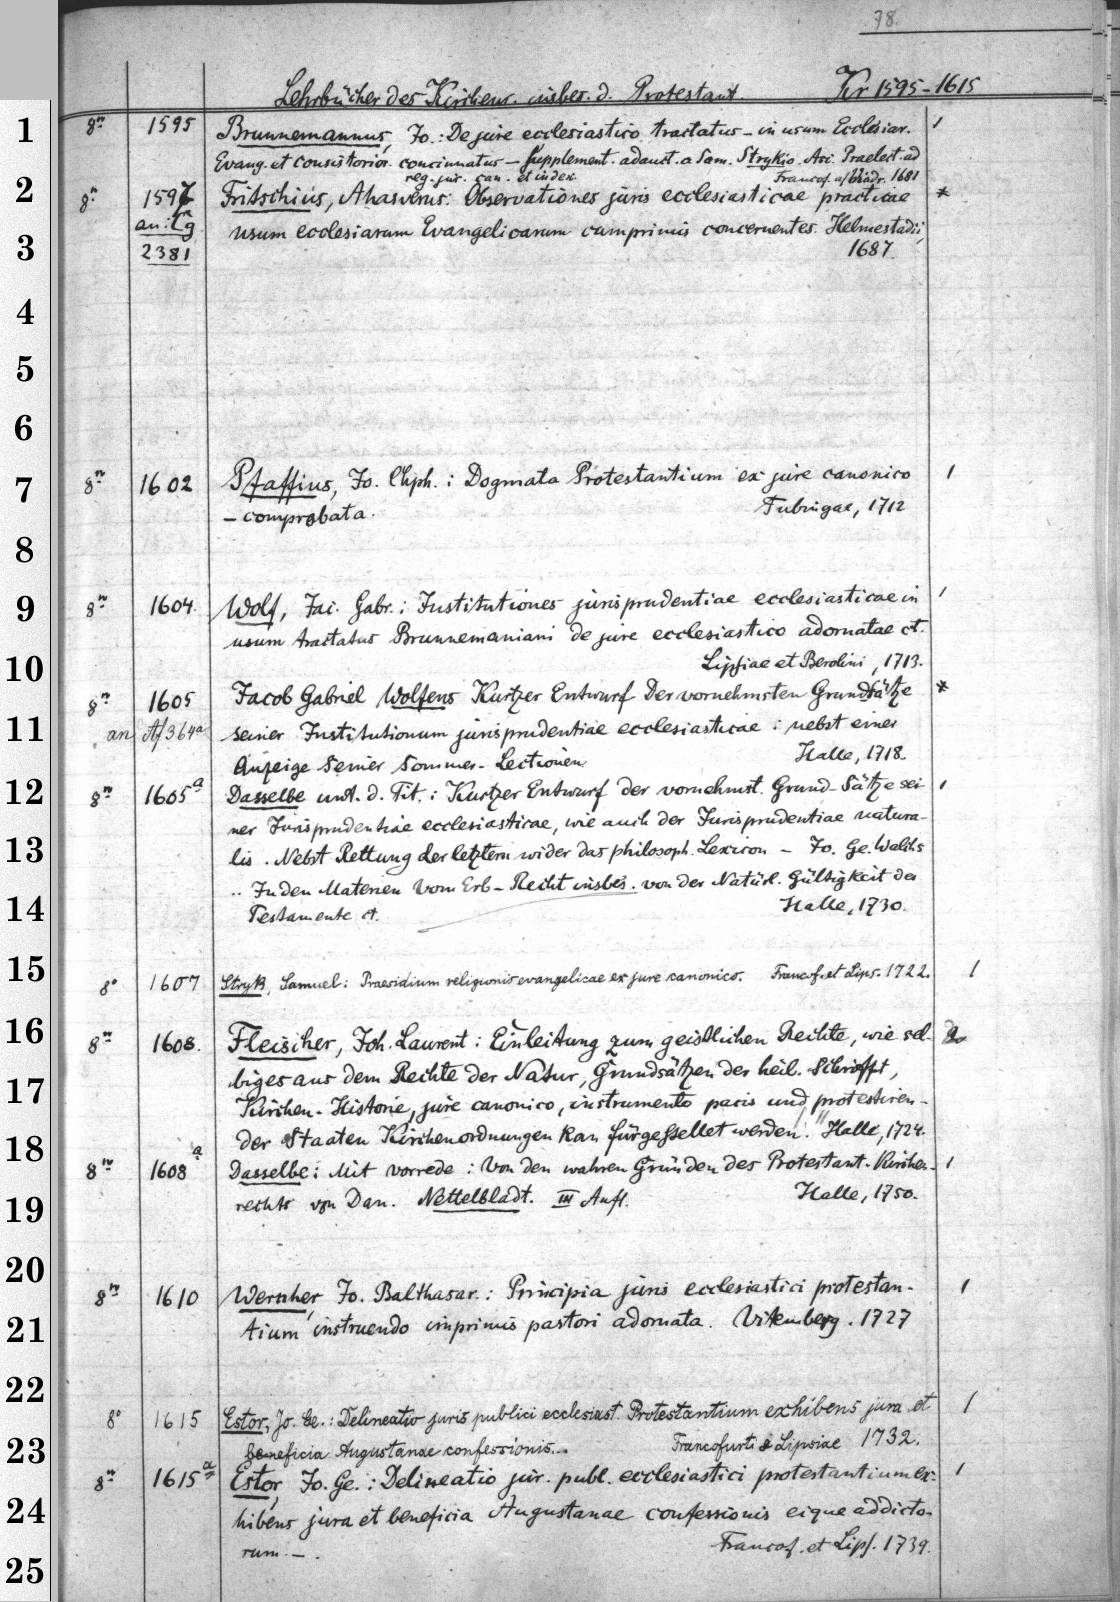 78.
Lehrbücher des Kirchenr. insbes. d. Protestant. Kr 1595-1615
1
2
3
4
5
6
7
8
9
10
11
12
13
14
15
16
17
18
19
20
21
22
23
24
25
8° 1595 Brunnemannus, Jo.: De jure ecclesiastico tractatus – in usum Ecclesiar. 1
Evang. et consistorior. concinnatus – Supplement. adauct. a Sam. Strykio. Acc. Praelect. ad
reg. jur. can. et index. Francof. a/Viadr. 1681
8° 1597 Fritschius, Ahasverus: Observationes juris ecclesiasticae practicae *
an: usum ecclesiarum Evangelicarum cumprimis concernentes. Helmestadii,
2381 1687.
8° 1602 Pfaffius, Jo. Chph.: Dogmata Protestantium ex jure canonico 1
– comprobata. Tubingae, 1712
8° 1604. Wolf, Jac. Gabr.: Institutiones jurisprudentiae ecclesiasticae in 1
usum tractatus Brunnemaniani de jure ecclesiastico adornatae ct.
Lipsiae et Berolini, 1713.
8° 1605 Jacob Gabriel Wolfens Kurtzer Entwurf Der vornehmsten Grundsätze *
an Af 364a seiner Institutionum jurisprudentiae ecclesiasticae: nebst einer
Anzeige seiner Sommer-Lectionen. Halle, 1718.
8° 1605a Dasselbe unt. d. Tit.: Kurtzer Entwurf der vornehmst. Grund-Sätze sei- 1
ner Jurisprudentiae ecclesiasticae, wie auch der Jurisprudentiae natura-
lis. Nebst Rettung der letztern wider das philosoph. Lexicon – Jo. Ge. Walchs
.. In den Materien vom Erb-Recht insbes. von der Natürl. Gültigkeit der
Testamente ct. Halle, 1730.
8° 1607 Stryk, Samuel: Praesidium religionis evangelicae ex jure canonico. Francof. et Lips. 1722. 1
8° 1608. Fleischer, Joh. Laurent: Einleitung zum geistlichen Rechte, wie sel-
biges aus dem Rechte der Natur, Grundsätzen der heil. Schrifft,
Kirchen-Historie, jure canonico, instrumento pacis und protestiren-
der Staaten Kirchenordnungen kan fürgestellet werden. Halle, 1724.
8° 1608a Dasselbe: Mit vorrede: Von den wahren Gründen des Protestant. Kirchen- 1
rechts von Dan. Nettelbladt. III Aufl. Halle, 1750.
8° 1610 Wernher, Jo. Balthasar.: Principia juris ecclesiastici protestan- 1
tium instruendo imprimis pastori adornata. Vitemberg. 1727
8° 1615 Estor, Jo. Ge.: Delineatio juris publici ecclesiast. Protestantium exhibens jura et 1
beneficia Augustanae confessionis... Francofurti & Lipsiae 1732.
8° 1615a Estor, Jo. Ge.: Delineatio jur. publ. ecclesiastici protestantium ex- 1
hibens jura et beneficia Augustanae confessionis eique addicto-
rum –. Francof. et Lips. 1739.